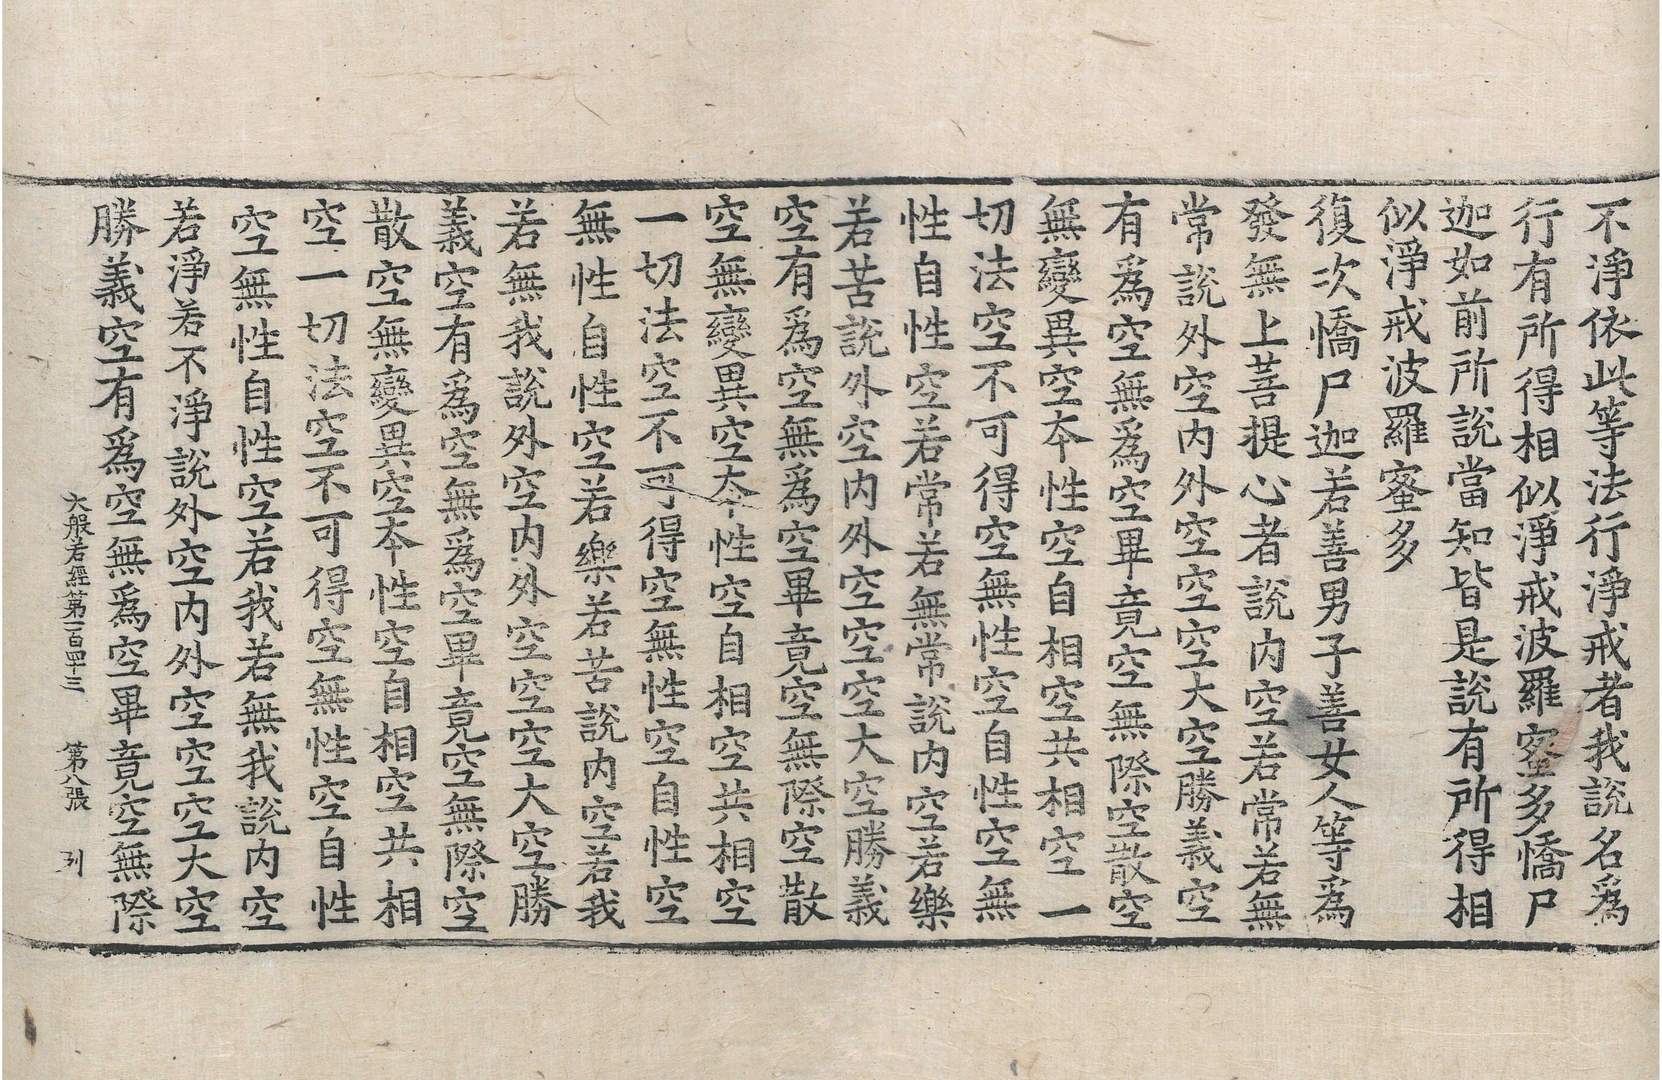 不淨依此等法行淨戒者我說名爲
行有所得相似淨戒波羅蜜多憍尸
迦如前所說當知皆是說有所得相
似淨戒波羅蜜多
復次憍尸迦若善男子善女人等爲
發無上菩提心者說内空若常若無
常說外空内外空空空大空勝義空
有爲空無爲空畢竟空無際空散空
無變異空本性空自相空共相空一
切法空不可得空無性空自性空無
性自性空若常若無常說内空若樂
若苦說外空内外空空空大空勝義
空有爲空無爲空畢竟空無際空散
空無變異空本性空自相空共相空
一切法空不可得空無性空自性空
無性自性空若樂若苦說内空若我
若無我說外空内外空空空大空勝
義空有爲空無爲空畢竟空無際空
散空無變異空本性空自相空共相
空一切法空不可得空無性空自性
空無性自性空若我若無我說内空
若淨若不淨說外空内外空空空大空
勝義空有爲空無爲空畢竟空無際
大般若經第一百四十三 第八張 列